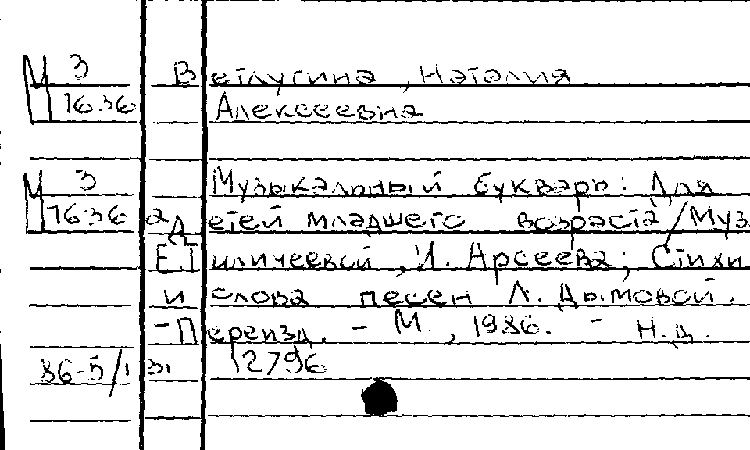 М 3 Ветлугина, Наталия
П 16.36 Алексеевна
М 3 Музыкальный букварь: Для
П 16.36 а детей младшего возраста / Муз.
Е. Тиличеевой, И. Арсеева; Стихи
и слова песен Л. Дымовой.
- Переизд. - М., 1986. - Н.Д.
86-5/131 12796